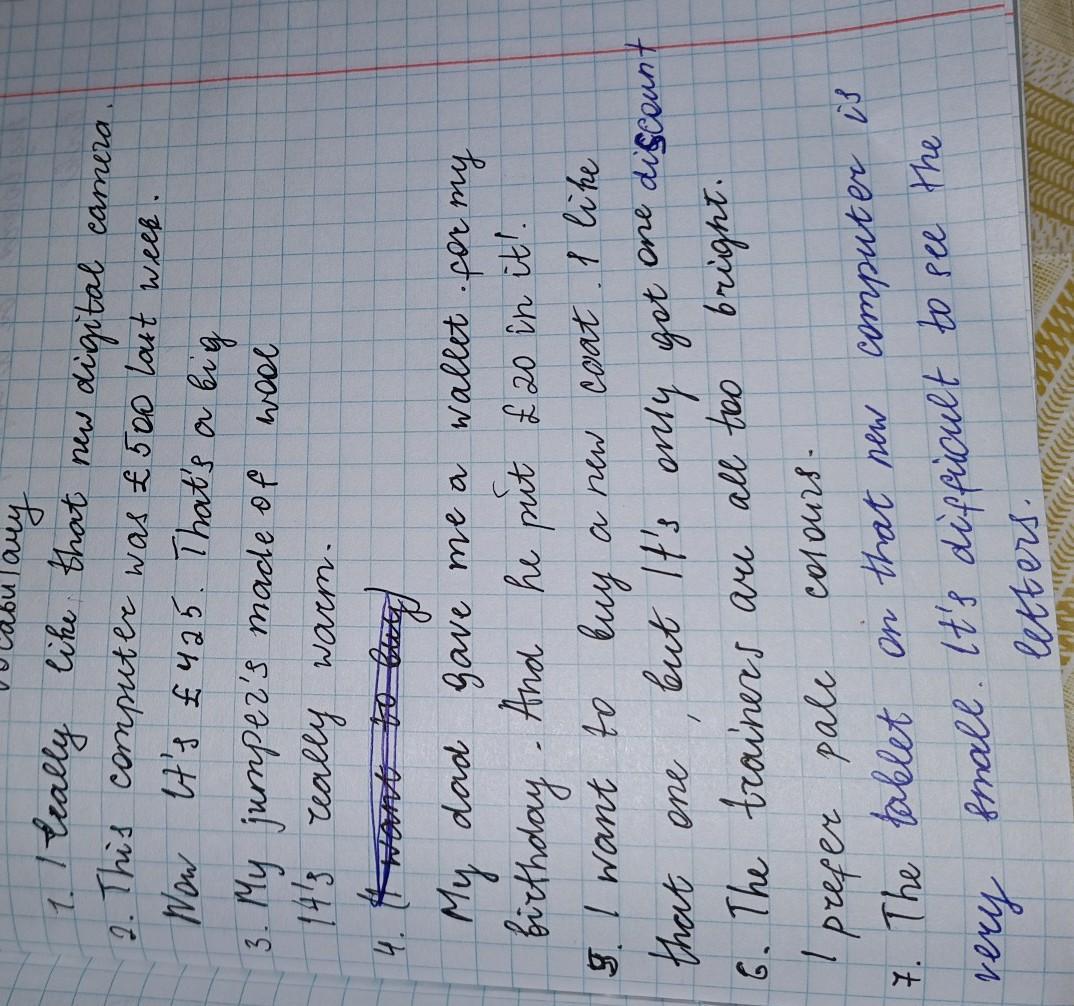 1. I really like that new digital camera.
2. This computer was £500 last week.
Now It's £425. That's a big
3. My jumper's made of wool
It's really warm.
4. (I want to buy)
My dad gave me a wallet for my
birthday. And he put £20 in it!
5. I want to buy a new coat. I like
that one, but It's only got one discount
6. The trainers are all too bright.
I prefer pale colours.
7. The tablet on that new computer is
very small. It's difficult to see the
letters.